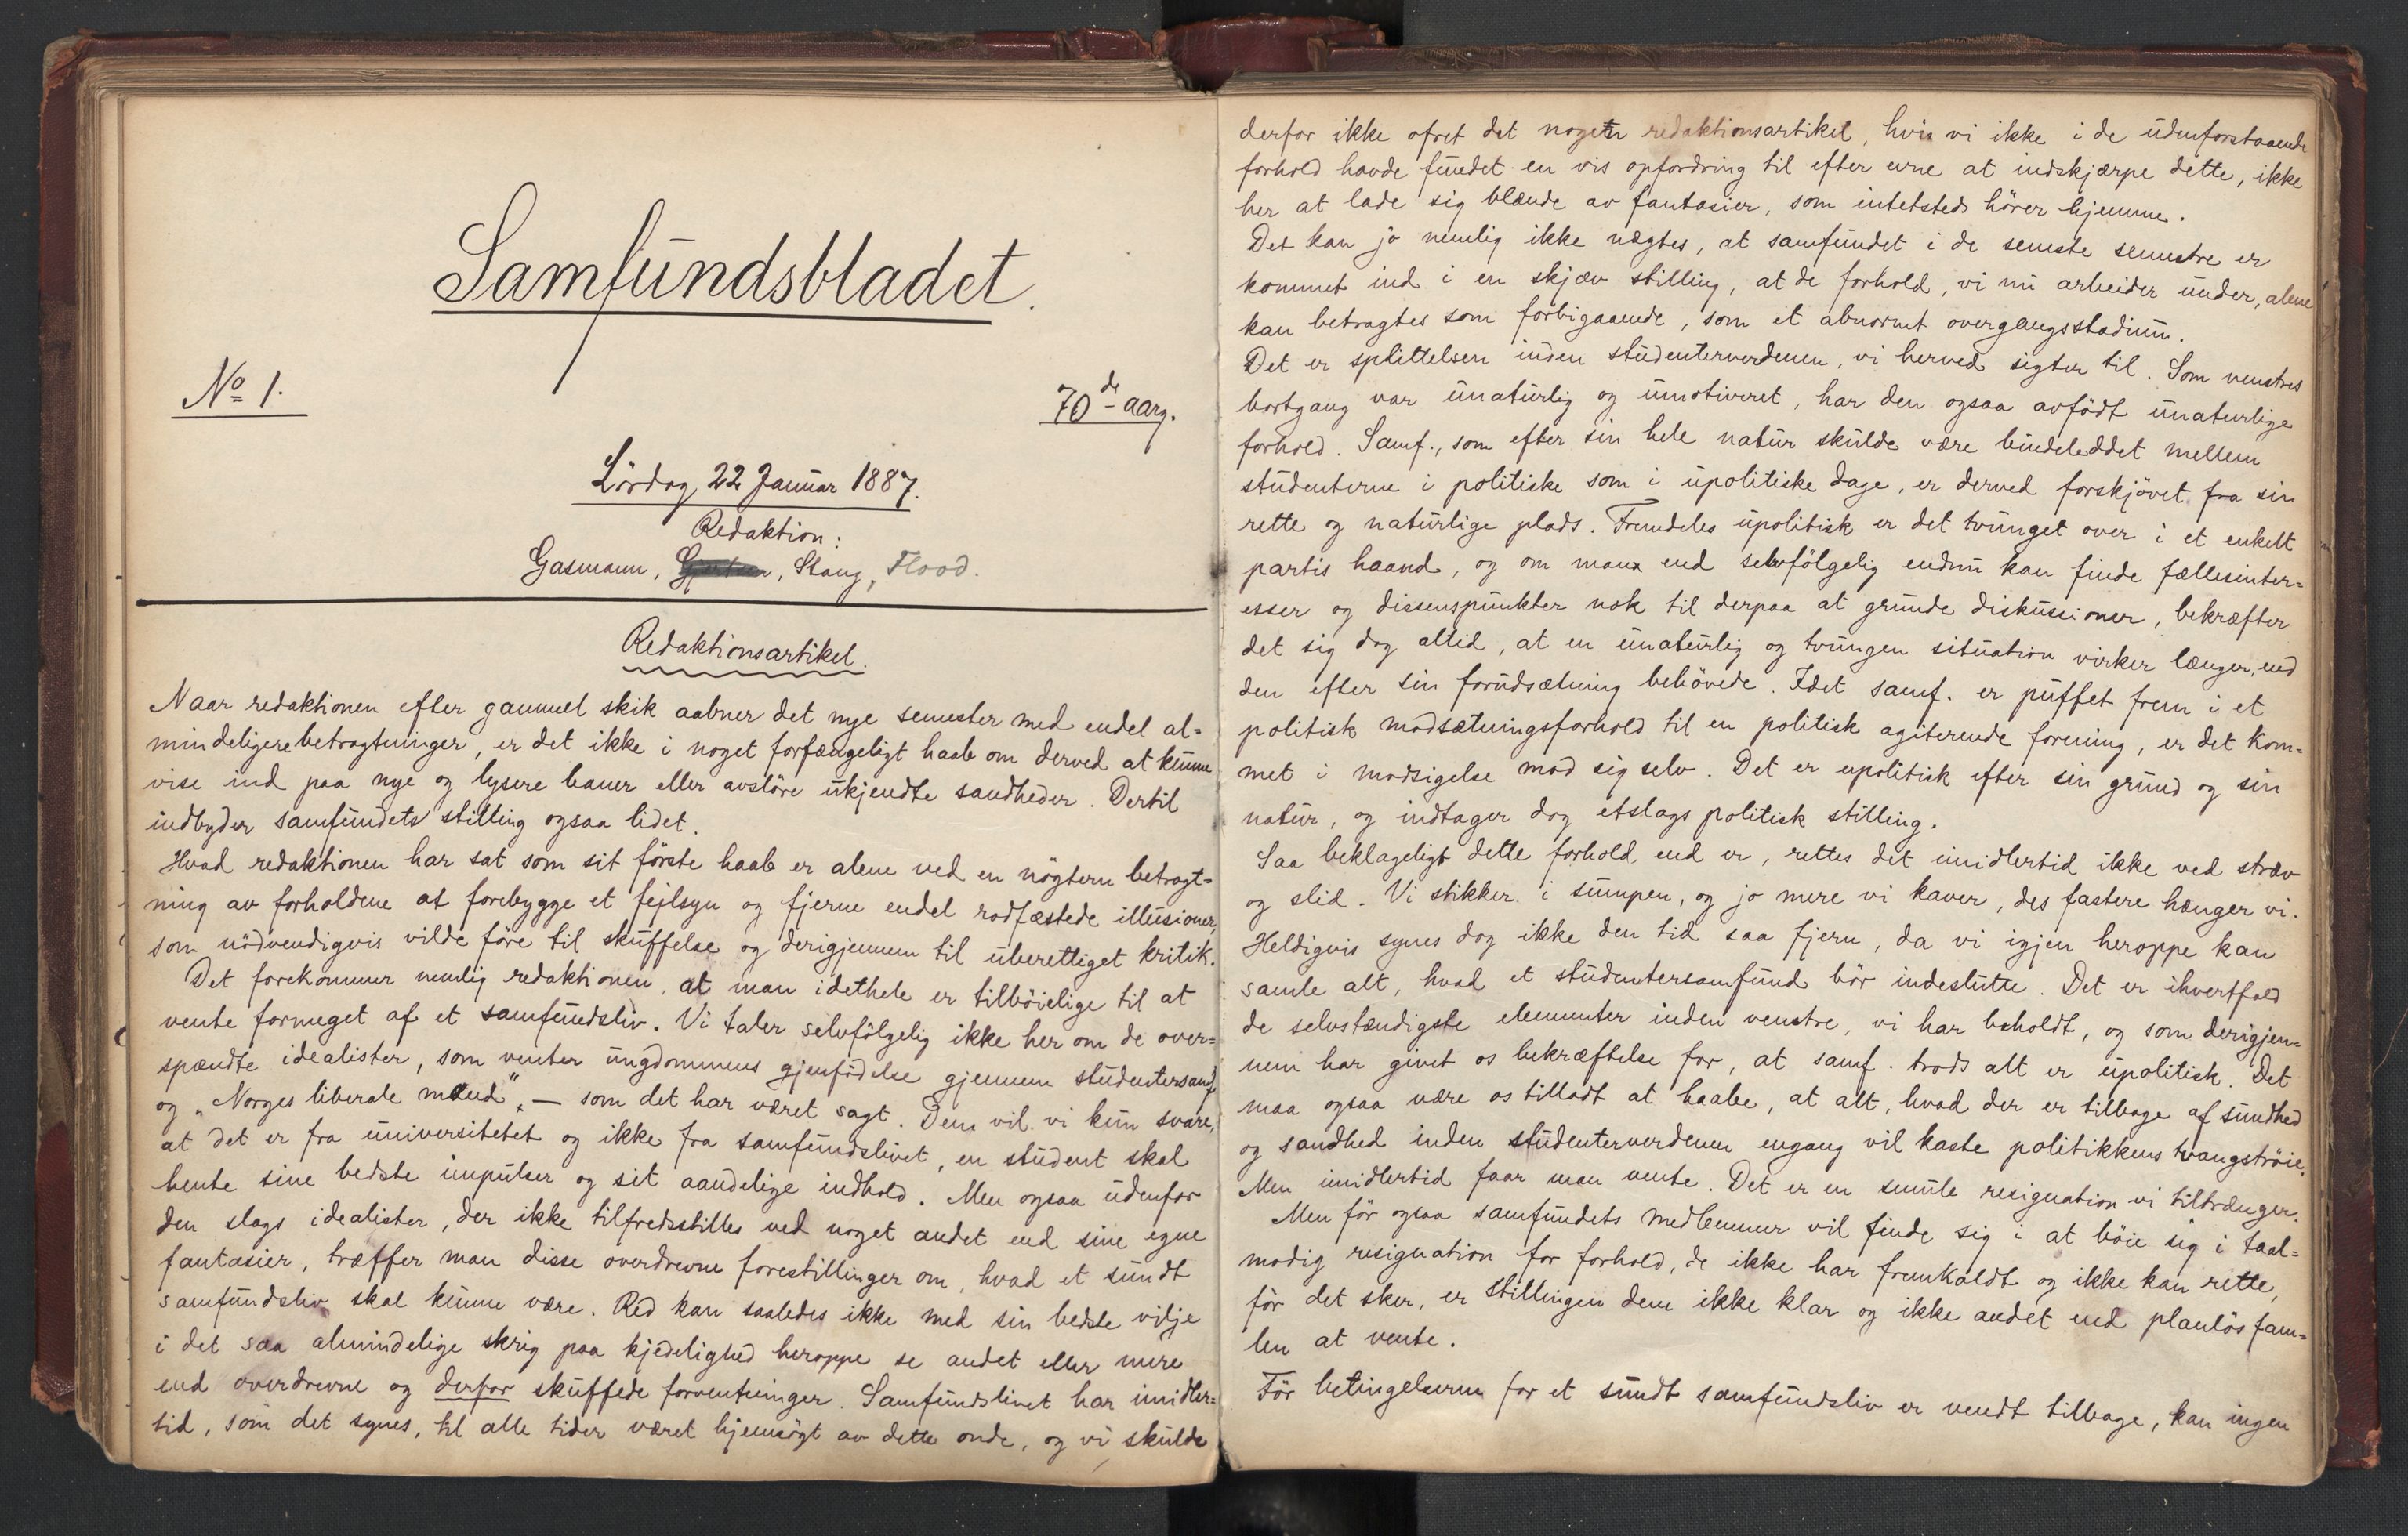 Samfundsbladet.
No 1.
70de aarg.
Lördag 22 Januar 1887.
Redaktion:
Gasmann, Gjertsen, Stang, Flood.
Redaktionsartikel.
Naar redaktionen efter gammel skik aabner det nye semester med endel al=
mindeligere betragtninger, er det ikke i noget forfængeligt haab om derved at kunne
vise ind paa nye og lysere baner eller avslöre ukjendte sandheder. Dertil
indbyder samfundets stilling ogsaa lidet.
Hvad redaktionen har sat som sit förste haab er alene ved en nögtern betragt=
ning av forholdene at forebygge et fejlsyn og fjerne endel rodfæstede illusioner,
som nödvendigvis vilde före til skuffelse og derigjennem til uberettiget kritik.
Det forekommer nemlig redaktionen, at man idethele er tilböielige til at
vente formeget af et samfundsliv. Vi taler selvfölgelig ikke her om de over=
spændte idealister, som venter ungdommens gjenfödelse gjennem studentersamf
og „Norges liberale mænd“ — som det har været sagt. Dem vil vi kun svare,
at det er fra universitetet og ikke fra samfundslivet, en student skal
hente sine bedste impulser og sit aandelige indhold. Men ogsaa udenfor
den slags idealister, der ikke tilfredsstilles ved noget andet end sine egne
fantasier, træffer man disse overdrevne forestillinger om, hvad et sundt
samfundsliv skal kunne være. Red kan saaledes ikke med sin bedste vilje
i det saa almindelige skrig paa kjedelighed heroppe se andet eller mere
end overdrevne og derfor skuffede forventninger. Samfundslivet har imidler=
tid, som det synes, til alle tider været hjemsögt av dette onde, og vi skulde
derfor ikke ofret det nogen redaktionsartikel, hvis vi ikke i de udenforstaaende
forhold havde fundet en vis opfordring til efter evne at indskjærpe dette, ikke
her at lade sig blænde av fantasier, som intetsteds hörer hjemme.
Det kan jo nemlig ikke nægtes, at samfundet i de seneste semestre er
kommet ind i en skjæv stilling, at de forhold, vi nu arbeider under, alene
kan betragtes som forbigaaende, som et abnormt overgangsstadium.
Det er splittelsen inden studenterverdenen, vi herved sigter til. Som venstres
bortgang var unaturlig og umotiveret, har den ogsaa avfödt unaturlige
forhold. Samf., som efter sin hele natur skulde være bindeleddet mellem
studenterne i politiske som i upolitiske dage, er derved forskjövet fra sin
rette og naturlige plads. Fremdeles upolitisk er det tvunget over i et enkelt
partis haand, og om man end selvfölgelig endnu kan finde fællesinter=
esser og dissenspunkter nok til derpaa at grunde diskussioner, bekræfter
det sig dog altid, at en unaturlig og tvungen situation virker længer, end
den efter sin forudsætning behövede. Idet samf. er puffet frem i et
politisk modsætningsforhold til en politisk agiterende forening, er det kom=
met i modsigelse mod sig selv. Det er upolitisk efter sin grund og sin
natur, og indtager dog etslags politisk stilling.
Saa beklageligt dette forhold end er, rettes det imidlertid ikke ved stræv
og slid. Vi stikker i sumpen, og jo mere vi kaver, des fastere hænger vi.
Heldigvis synes dog ikke den tid saa fjern, da vi igjen heroppe kan
samle alt, hvad et studentersamfund bör indeslutte. Det er ihvertfald
de selvstændigste elementer inden venstre, vi har beholdt, og som derigjen=
nem har givet os bekræftelse for, at samf. trods alt er upolitisk. Det
maa ogsaa være os tilladt at haabe, at alt, hvad der er tilbage af sundhed
og sandhed inden studenterverdenen engang vil kaste politikkens tvangströie.
Men imidlertid faar man vente. Det er en smule resignation vi tiltrænger.
Men för ogsaa samfundets medlemmer vil finde sig i at böie sig i taal=
modig resignation for forhold, de ikke har fremkaldt og ikke kan rette,
för det sker, er stillingen dem ikke klar og ikke andet end planlös fam=
len at vente.
För betingelserne for et sundt samfundsliv er vendt tilbage, kan ingen